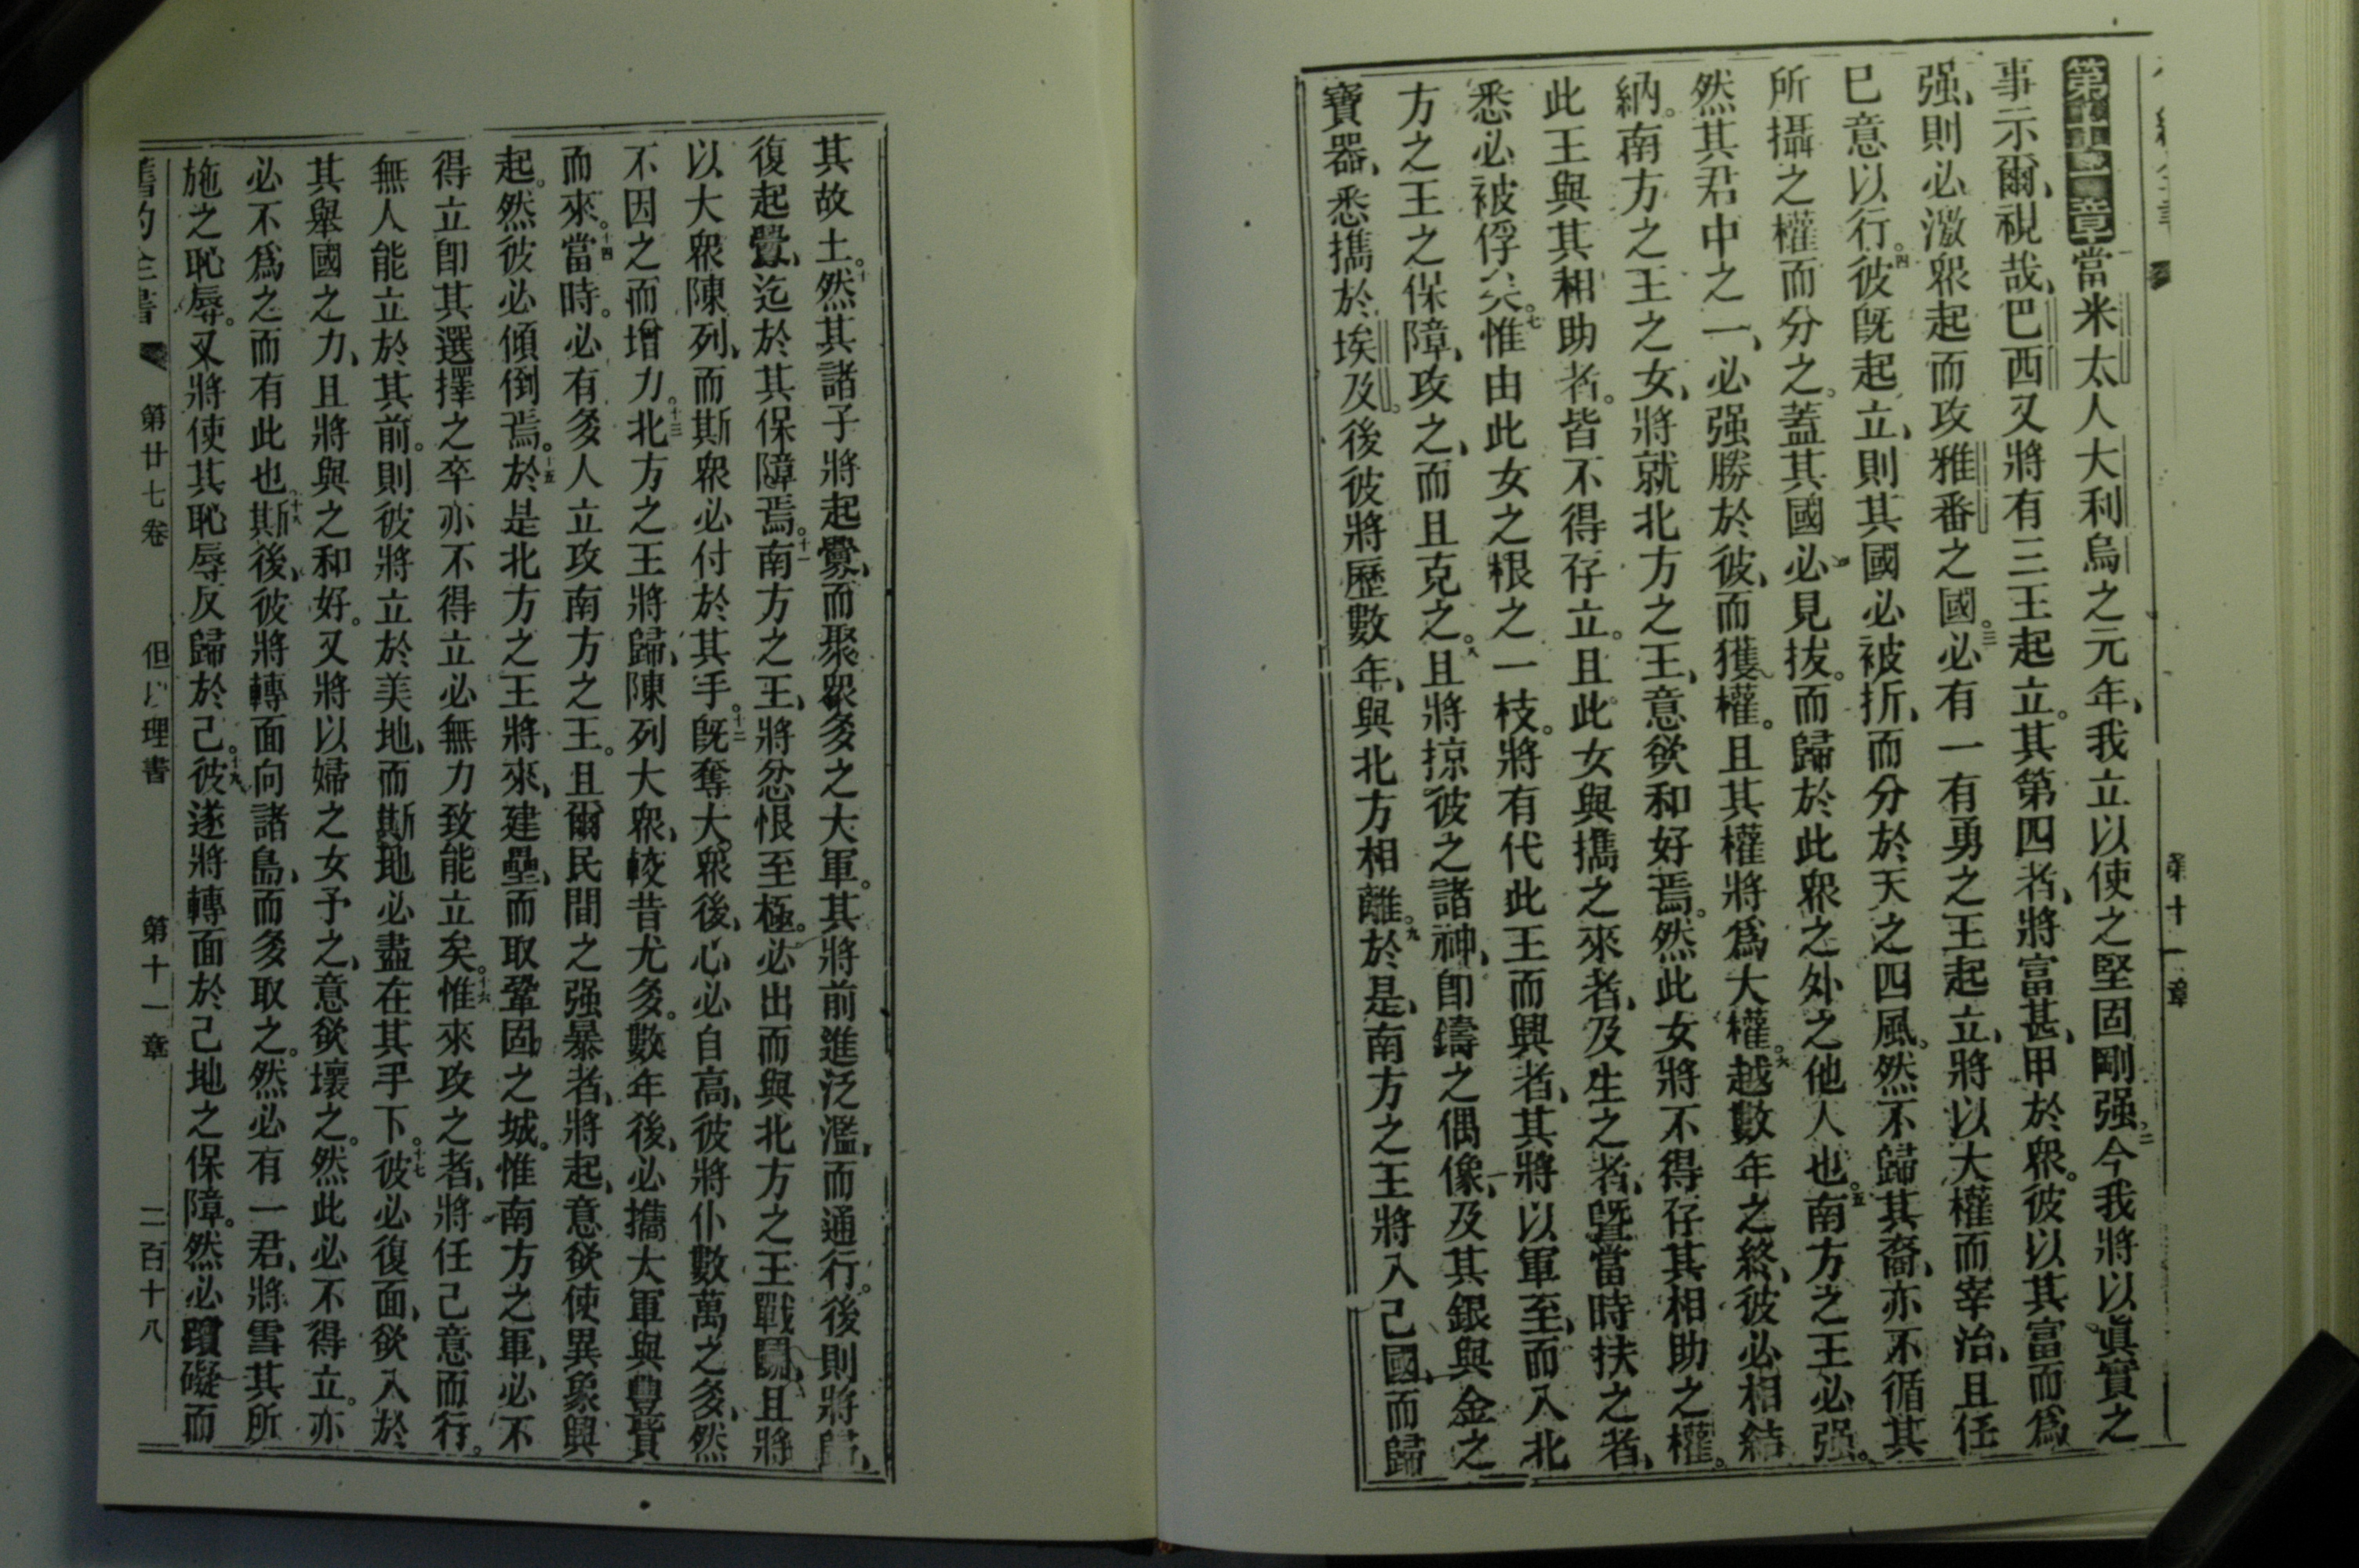 第十一章
第十一章當米太人大利烏之元年、我立以使之堅固剛强。二今我將以眞實之
事示爾、視哉、巴西又將有三王起立。其第四者、將富甚、甲於眾。彼以其富而爲
强、則必激眾起而攻雅番之國。三必有一有勇之王起立、將以大權而宰治、且任
已意以行。四彼旣起立、則其國必被折、而分於天之四風。然不歸其裔、亦不循其
所攝之權而分之。蓋其國必見拔。而歸於此眾之外之他人也。五南方之王必强。
然其君中之一、必强勝於彼、而獲權。且其權將爲大權。六越數年之終、彼必相結
納。南方之王之女、將就北方之王、意欲和好焉。然此女將不得存其相助之權。
此王與其相助者。皆不得存立。且此女與攜之來者、及生之者、曁當時扶之者、
悉必被俘矣。七惟由此女之根之一枝。將有代此王而興者、其將以軍至、而入北
方之王之保障、攻之、而且克之。八且將掠彼之諸神、卽鑄之偶像、及其銀與金之
寶器、悉攜於埃及。後彼將歷數年、與北方相離。九於是、南方之王將入己國、而歸
其故土。十然其諸子將起釁、而聚眾多之大軍。其將前進泛濫、而通行。後則將歸、
復起釁、迄於其保障焉。十一南方之王、將忿恨至極。必出而與北方之王戰鬭、且將
以大眾陳列、而斯眾必付於其手。十二旣奪大眾後、心必自高、彼將仆數萬之多、然
不因之而增力。十三北方之王將歸、陳列大眾、較昔尤多。數年後、必攜大軍與豐貲
而來。十四當時。必有多人立攻南方之王。且爾民間之强暴者、將起、意欲使異象興
起。然彼必傾倒焉。十五於是北方之王將來、建壘、而取鞏固之城。惟南方之軍、必不
得立卽其選擇之卒亦不得立必無力致能立矣。十六惟來攻之者、將任己意而行。
無人能立於其前。則彼將立於美地、而斯地必盡在其手下。十七彼必復面、欲入於
其舉國之力、且將與之和好。又將以婦之女予之、意欲壞之。然此必不得立。亦
必不爲之而有此也。十八斯後、彼將轉面向諸島、而多取之。然必有一君、將雪其所
施之恥辱。又將使其恥辱反歸於己。十九彼遂將轉面於己地之保障。然必礙而
舊約全書 第廿七卷 但以理書 第十一章 二百十八